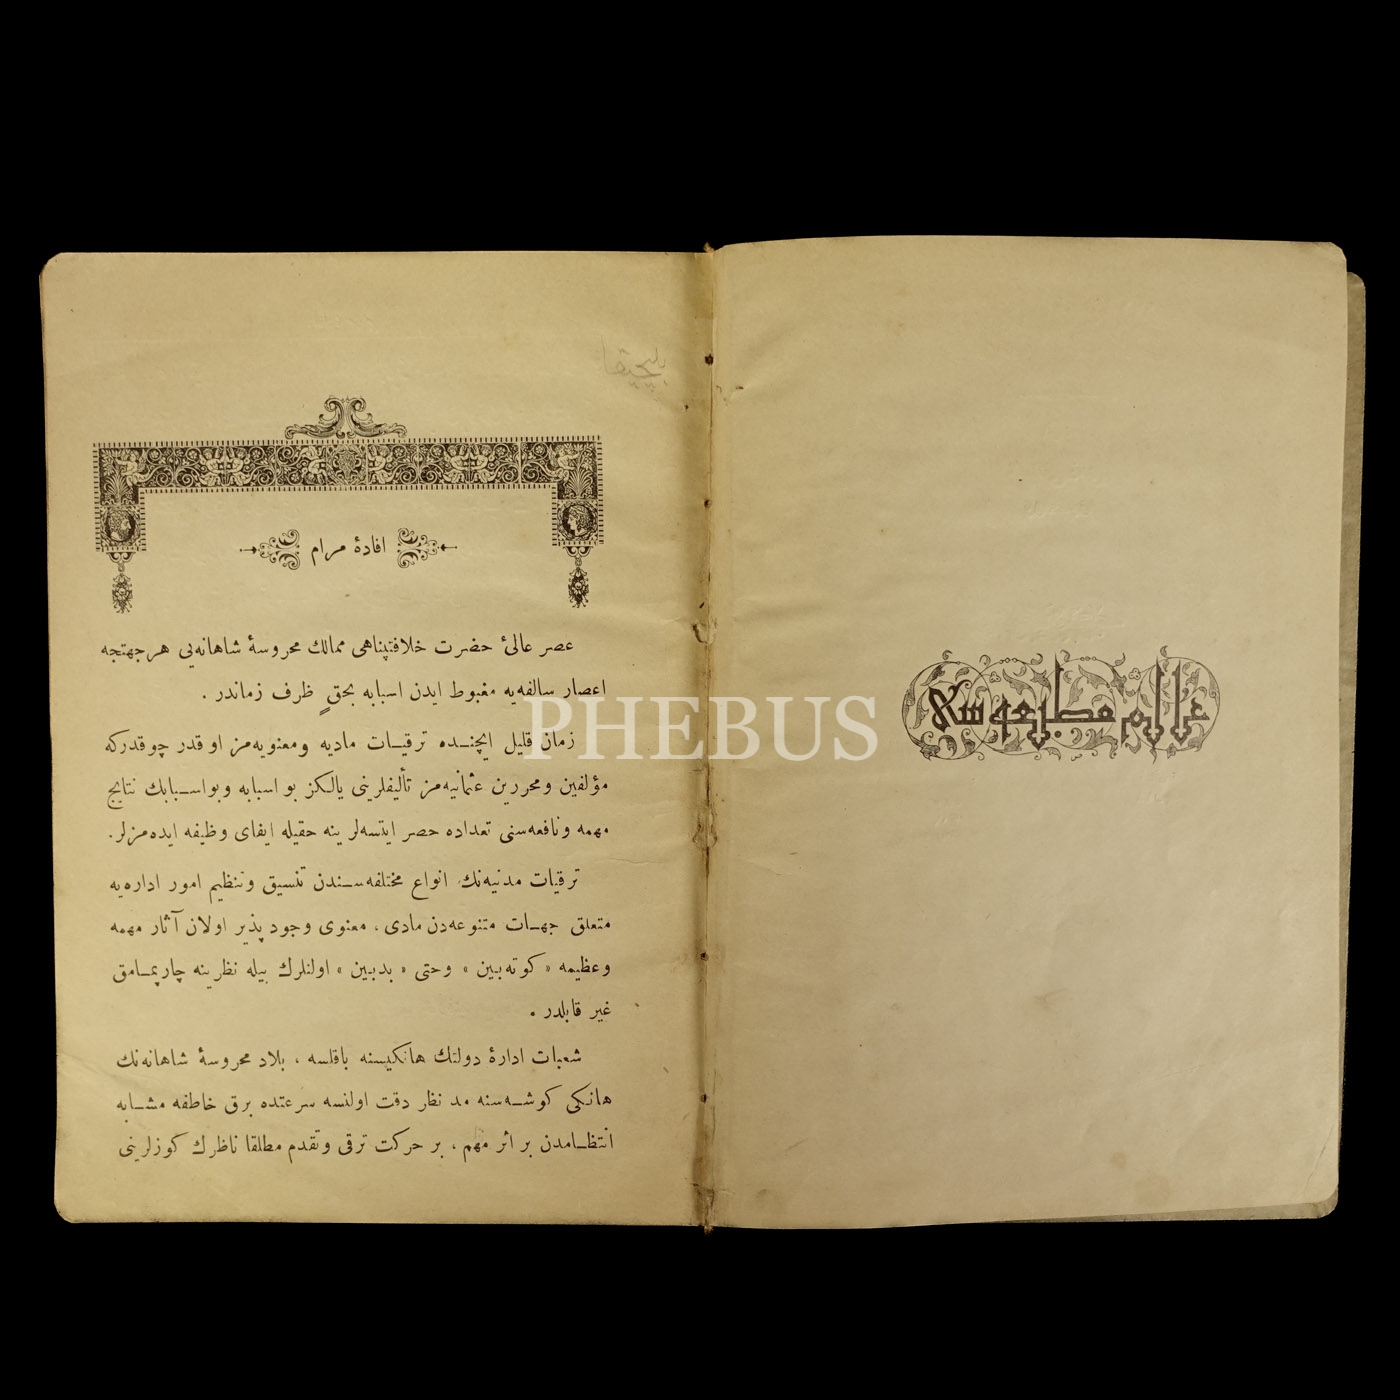 عالم مطبعه سی
افادۀ مرام
عصر عالئ حضرت خلافتپناهی ممالك محروسۀ شاهانه‌یی هر جهتجه
اعصار سالفه‌یه مغبوط ایدن اسبابه بحقٍ ظرف زماندر .
زمان قلیل ایچنده ترقیات مادیه و معنویه‌مز او قدر چوقدرکه
مؤلفین و محررین عثمانیه‌مز تألیفلرینی یالکز بو اسبابه و بو اسبابك نتایج
مهمه و نافعه‌سنی تعداده حصر ایتسه‌لر ینه حقیله ایفای وظیفه ایده‌مزلر.
ترقیات مدنیه‌نك انواع مختلفه‌سندن تنسیق و تنظیم امور اداره‌یه
متعلق جهات متنوعه‌دن مادی ، معنوی وجود پذیر اولان آثار مهمه
و عظیمه « کوته‌بین » وحتی « بدبین » اولنلرك بیله نظرینه چارپمامق
غیر قابلدر .
شعبات ادارۀ دولتك هانکیسنه باقلسه ، بلاد محروسۀ شاهانه‌نك
هانکی کوشه‌سنه مد نظار دقت اولنسه سرعتده برق خاطفه مشابه
انتظامدن بر اثر مهم ، بر حرکت ترقی و تقدم مطلقا ناظرك کوزلرینی
PHEBUS